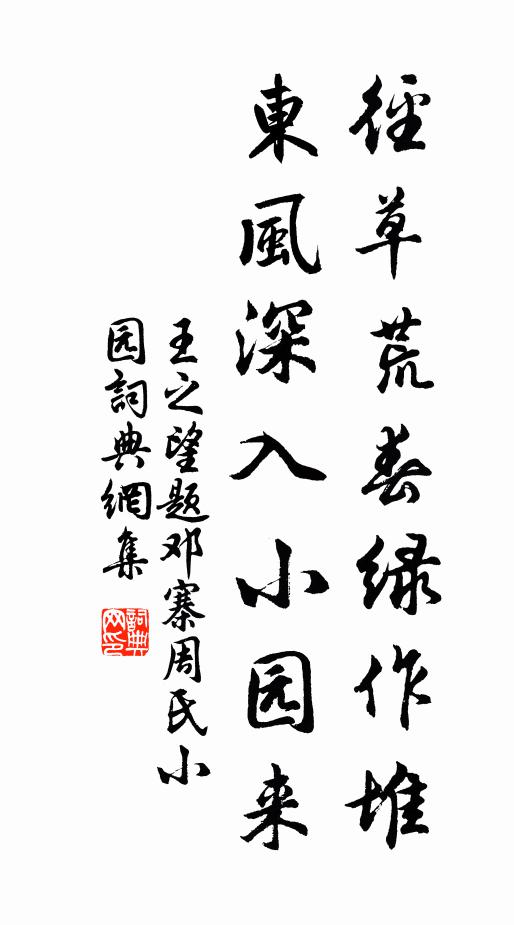 徑草荒春緑作堆
東風深入小园来
王之望题邓寨周氏小
园詞典網集
詞典
网印